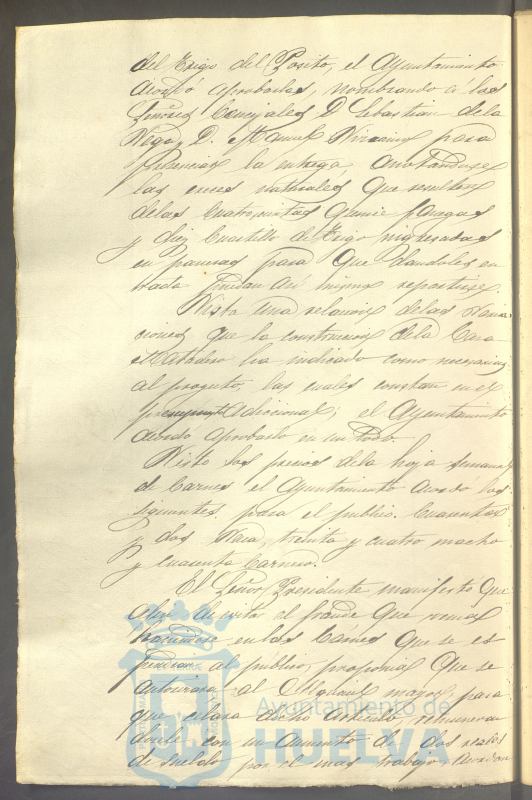 del Trigo del Posito, el Ayuntamiento
acordó aprobarlas, nombrando a los
Señores Concejales D. Sebastian de la
Vega y D. Manuel para
presenciar la entrega, anotandose
las creces naturales que resulten
de las cuatrocientas quince fanegas
y diez Cuartillo de Trigo ingresadas
en paneras para que dandoles en
trada puedan asi mismo repartirse.
Vista una relacion de las Varia
ciones que la construccion de la Casa
Matadero ha indicado como necesarias
al proyecto, las cuales constan en el
presupuesto Adiccional; el Ayuntamiento
acordó aprobarlo en un todo.
Visto los precios de la hoja semanal
de Carnes el Ayuntamiento acordó los
siguientes para el publico. Cuarenta
y dos Vaca, treinta y cuatro macho
y cuarenta Carnero.
El Señor Presidente manifestó que
deseo de evitar el fraude que venia
haciendose en las Carnes que se es
pendian al publico, proponia que se
autorizara al Alguacil mayor, para
que celara dicho articulo, remuneran
dosele con un aumento de dos reales
de sueldo por el mas trabajo. Acordan
Ayuntamiento de
HUELVA